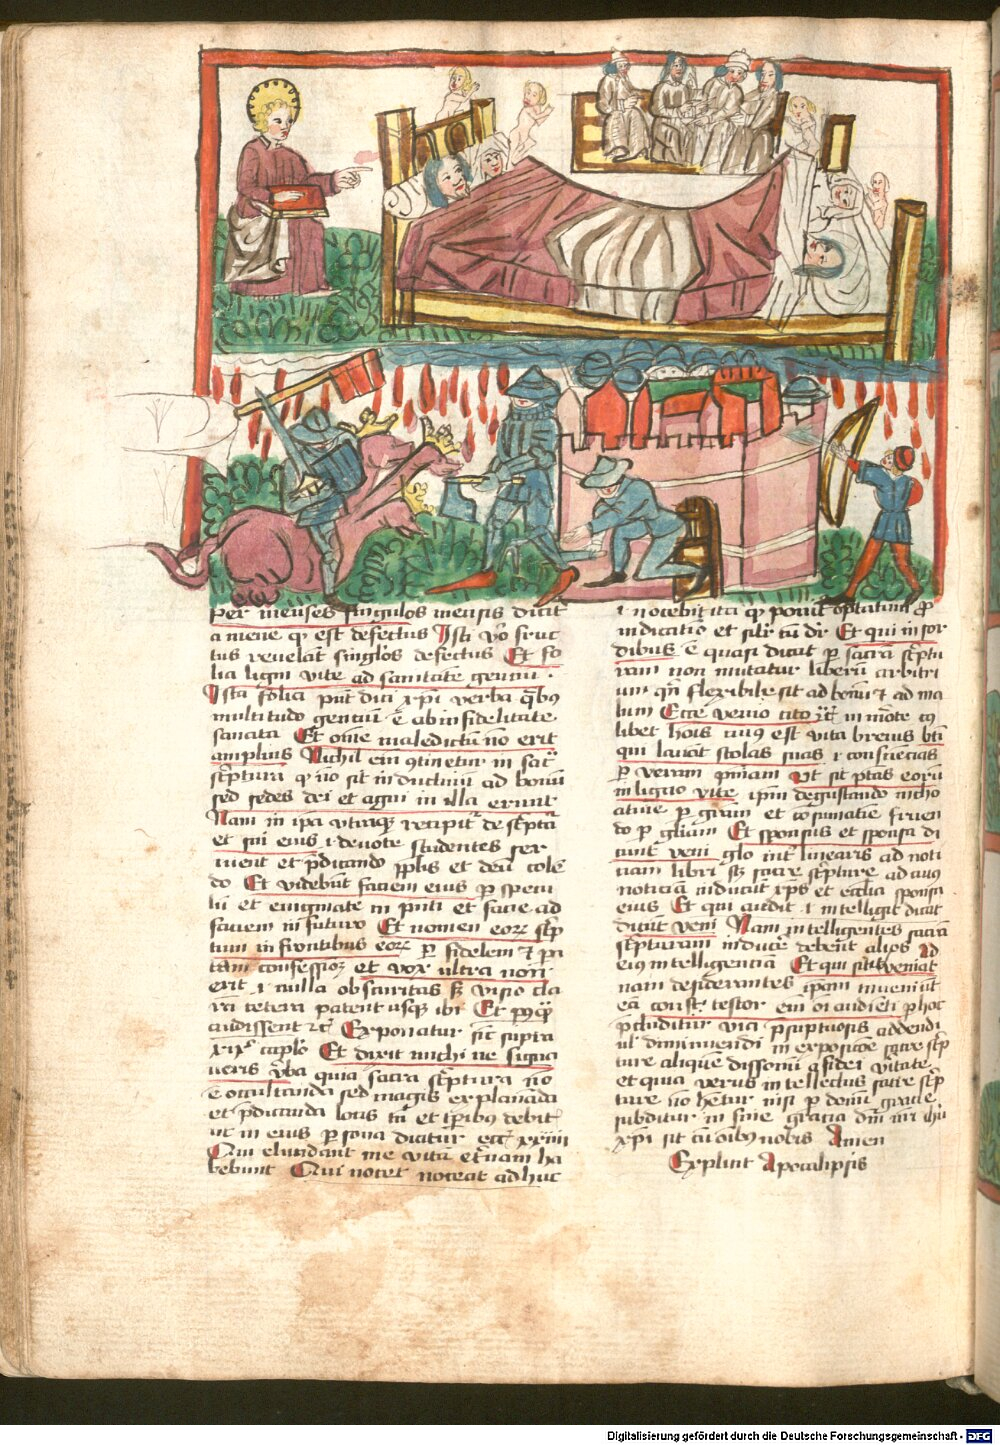 per menses singulos mensis dicit
a mene qd est defectus Isti vo fruc
tus revelant singlos defectus Et fo
lia ligni vite ad sanitate gentiu
Ista folia pnt dici xpi verba qbus
multitudo gentiu e ab infidelitate
sanata Et ome maledictu no erit
amplius Nichil ein gtinetur in sac
sptura qd no sit inductiuu ad bonu
sed sedes dei et agni in illa erunt
Nam in ipa utraqz recipit de scpta
et sui eius i devote studentes ser
uient et pdicando pplis et deu cole
do Et videbut faciem eius p specu
lu et enigmate in pnti et facie ad
faciem in futuro Et nomen eorz scp
tum in frontibus eorz p fidelem et
tam confessioz et nox ultra non
erit i nulla obscuritas sz visio cla
ra cetera patent usqz ibi Et
audissent etc Exponatur sic supra
xixo caplo Et dixit michi ne signa
ueris vba quia sacra scptura no
e occultanda sed magis explananda
et pdicanda locis tn et tpibus debit
ut in eius psona dicatur ecc xxiiii
Qui elucidant me vita et'nam ha
bebunt Qui nocet noceat adhuc
i nocebit ita qd ponit optatiuu p
indicatiuo et silr cu dr Et qui in sor
dibus e quasi dicat p sacra scptu
ram non mutatur liberu arbitri
um qn flexibile sit ad bonu et ad ma
lum Ecce venio cito etc in morte cu
libet hois cuius est vita breuis bti
qui lauat stolas suas i consciencias
p veram pniam Ut sit ptas eoru
in ligno vite ipm degustando incho
atiue p gram et cosumatiue fruen
do p gliam Et sponsus et sponsa di
cunt veni glo int' linearis ad noti
ciam libri sz sacre scpture ad cuius
noticia inducut xps et ecclia sponsa
eius Et qui audit i intelligit dicat
dicat veni Nam intelligentes sacra
scpturam induce debent alios ad
eius intelligentia Et qui sitit veniat
nam desiderantes ipam inueniut
ea contestor eni oi audieti p hoc
pcluditur via psuptuosis addendi
ul' diminuendi in exposicoe sacre scp
ture aliquid dissonu a fidei vitate
et quia verus intellectus sacre scp
ture no hetur nisi p donu gracie
subditur in fine gracia dni nri ihu
xpi sit cu oibus nobis Amen
Explicit Apocalipsis
Digitalisierung gefördert durch die Deutsche Forschungsgemeinschaft - DFG